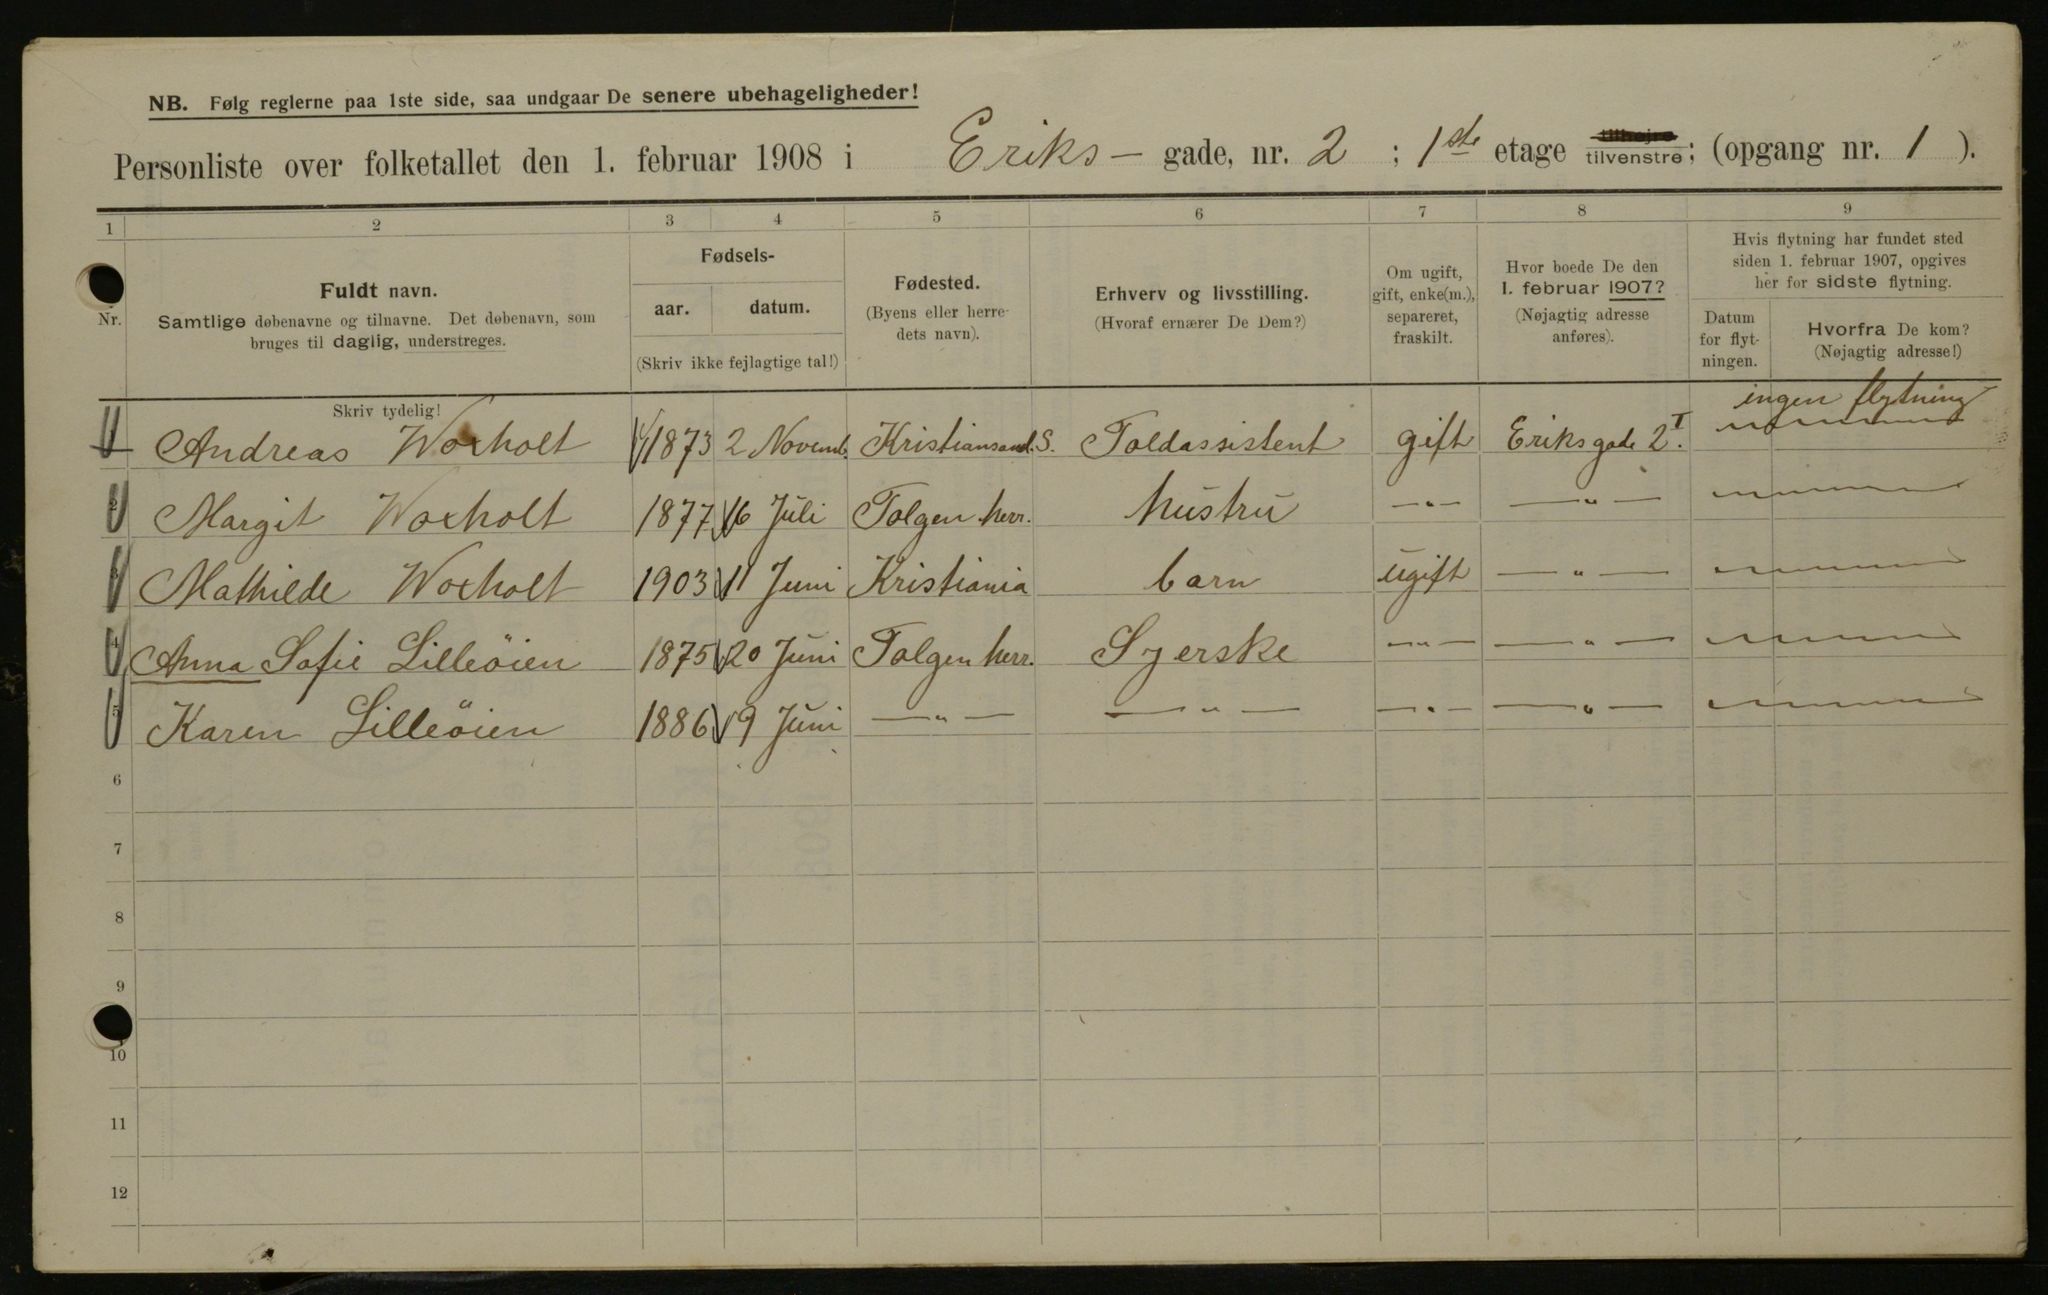 NB. Følg reglerne paa 1ste side, saa undgaar De senere ubehageligheder!
Personliste over folketallet den 1. februar 1908 i Eriks - gade, nr. 2 ; 1ste etage tilhøjre tilvenstre; (opgang nr. 1 ).
1 2 3 4 5 6 7 8 9
Nr.
Fuldt navn.
Samtlige døbenavne og tilnavne. Det døbenavn, som
bruges til daglig, understreges.
Fødsels-
aar. datum.
(Skriv ikke fejlagtige tal!)
Fødested.
(Byens eller herre-
dets navn).
Erhverv og livsstilling.
(Hvoraf ernærer De Dem?)
Om ugift,
gift, enke(m.),
separeret,
fraskilt.
Hvor boede De den
1. februar 1907?
(Nøjagtig adresse
anføres).
Hvis flytning har fundet sted
siden 1. februar 1907, opgives
her for sidste flytning.
Datum
for flyt-
ningen.
Hvorfra De kom?
(Nøjagtig adresse!)
Skriv tydelig!
ingen flytning
Andreas Woxholt 1873 2 Novemb. Kristiansand. S. Toldassistent gift Eriksgade 2 I.
Margit Woxholt 1877 16 Juli Tolgen herr. hustru —"— —"—
Mathilde Woxholt 1903 11 Juni Kristiania barn ugift —"—
4 Anna Sofie Lilleöien 1875 20 Juni Tolgen herr. Syerske —"— —"—
5 Karen Lilleöien 1886 9 Juni —"— —"— —"— —"—
6
7
8
9
10
11
12